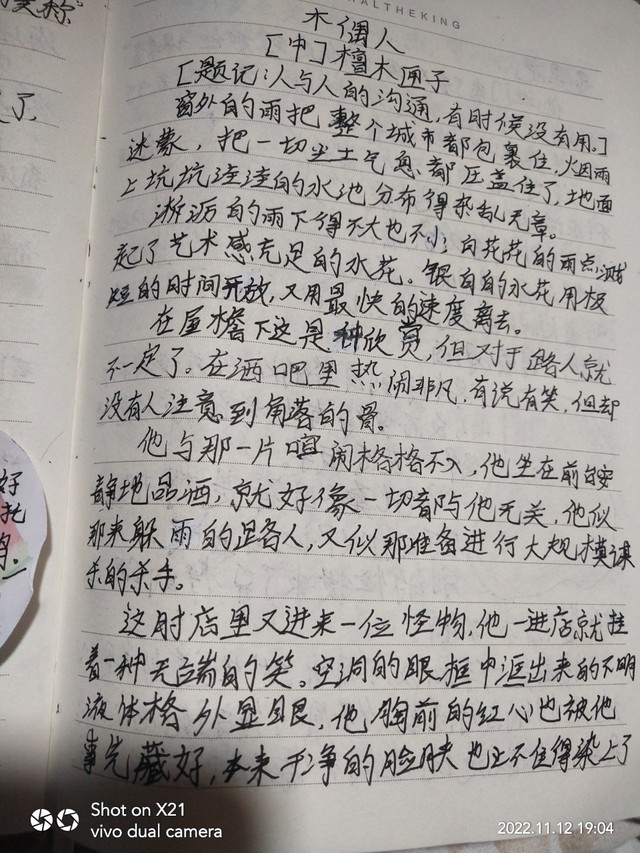 ALTHEKING
木偶人
[中]檀木匣子
[题记:人与人的沟通,有时候没有用。]
窗外的雨把整个城市都包裹住,烟雨
迷蒙,把一切尘土气息都压盖住了,地面
上坑坑洼洼的水池分布得杂乱无章。
淅沥的雨下得不大也不小;白花花的雨点溅
起了艺术感充足的水花。银白的水花用极
短的时间开放,又用最快的速度离去。
在屋檐下这是种欣赏,但对于路人就
不一定了。在酒吧里热闹非凡,有说有笑,但却
没有人注意到角落的骨。
他与那一片喧闹格格不入,他坐在前台安
静地品酒,就好像一切都与他无关,他似
那来躲雨的路人,又似那准备进行大规模谋
杀的杀手。
这时店里又进来一位怪物,他一进店就挂
着一种无端的笑。空洞的眼框中流出来的不明
液体格外显眼,他胸前的红心也被他
事先藏好,本来干净的脸肤也止不住得染上了
好
托
的
了
Shot on X21
vivo dual camera
2022.11.12 19:04